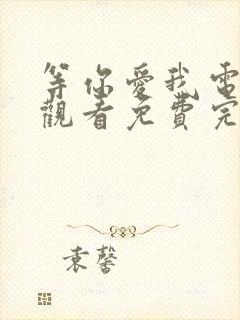 等你爱我電
觀看免費完
袁馨